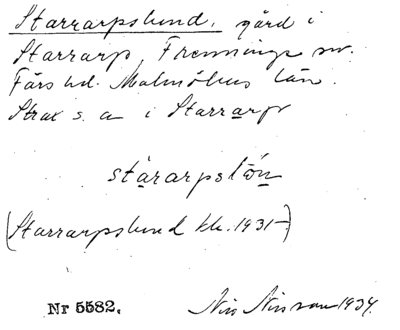 Starrarpslund, gård i
Starrarp, Fränninge sn.
Färs hd. Malmöhus län.
Strax s. a i Starrarp
stararpslön
(Starrarpslund kk. 1931-)
Nr 5582. Nils Nilsson 1934.